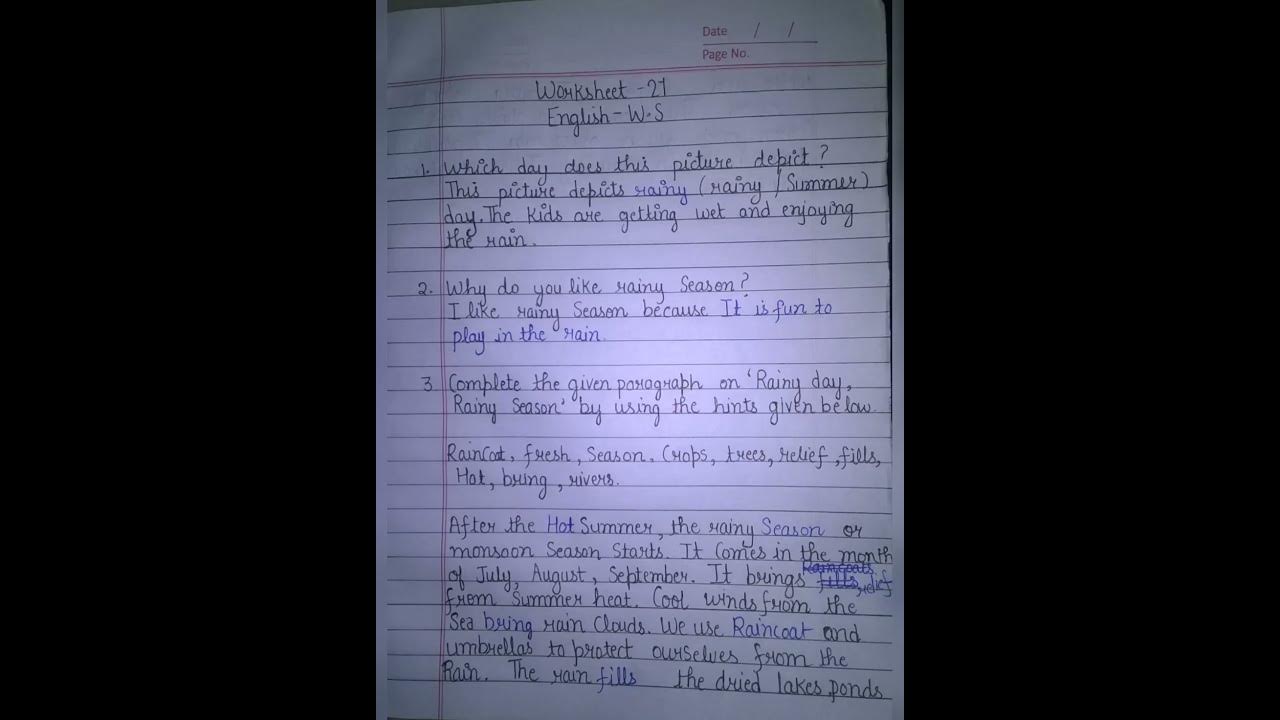 Date / /
Page No.
Worksheet - 21
English - W.S
1. Which day does this picture depict?
This picture depicts rainy (rainy / Summer)
day. The Kids are getting wet and enjoying
the rain.
2. Why do you like rainy Season?
I like rainy Season because It is fun to
play in the rain.
3. Complete the given paragraph on 'Rainy day,
Rainy Season' by using the hints given below.
RainCoat, fresh, Season, Crops, trees, relief, fills,
Hot, bring, rivers.
After the Hot Summer, the rainy Season or
monsoon Season Starts. It Comes in the month
of July, August, September. It brings relief
from Summer heat. Cool winds from the
Sea bring rain Clouds. We use Raincoat and
umbrellas to protect ourselves from the
Rain. The rain fills the dried lakes, ponds